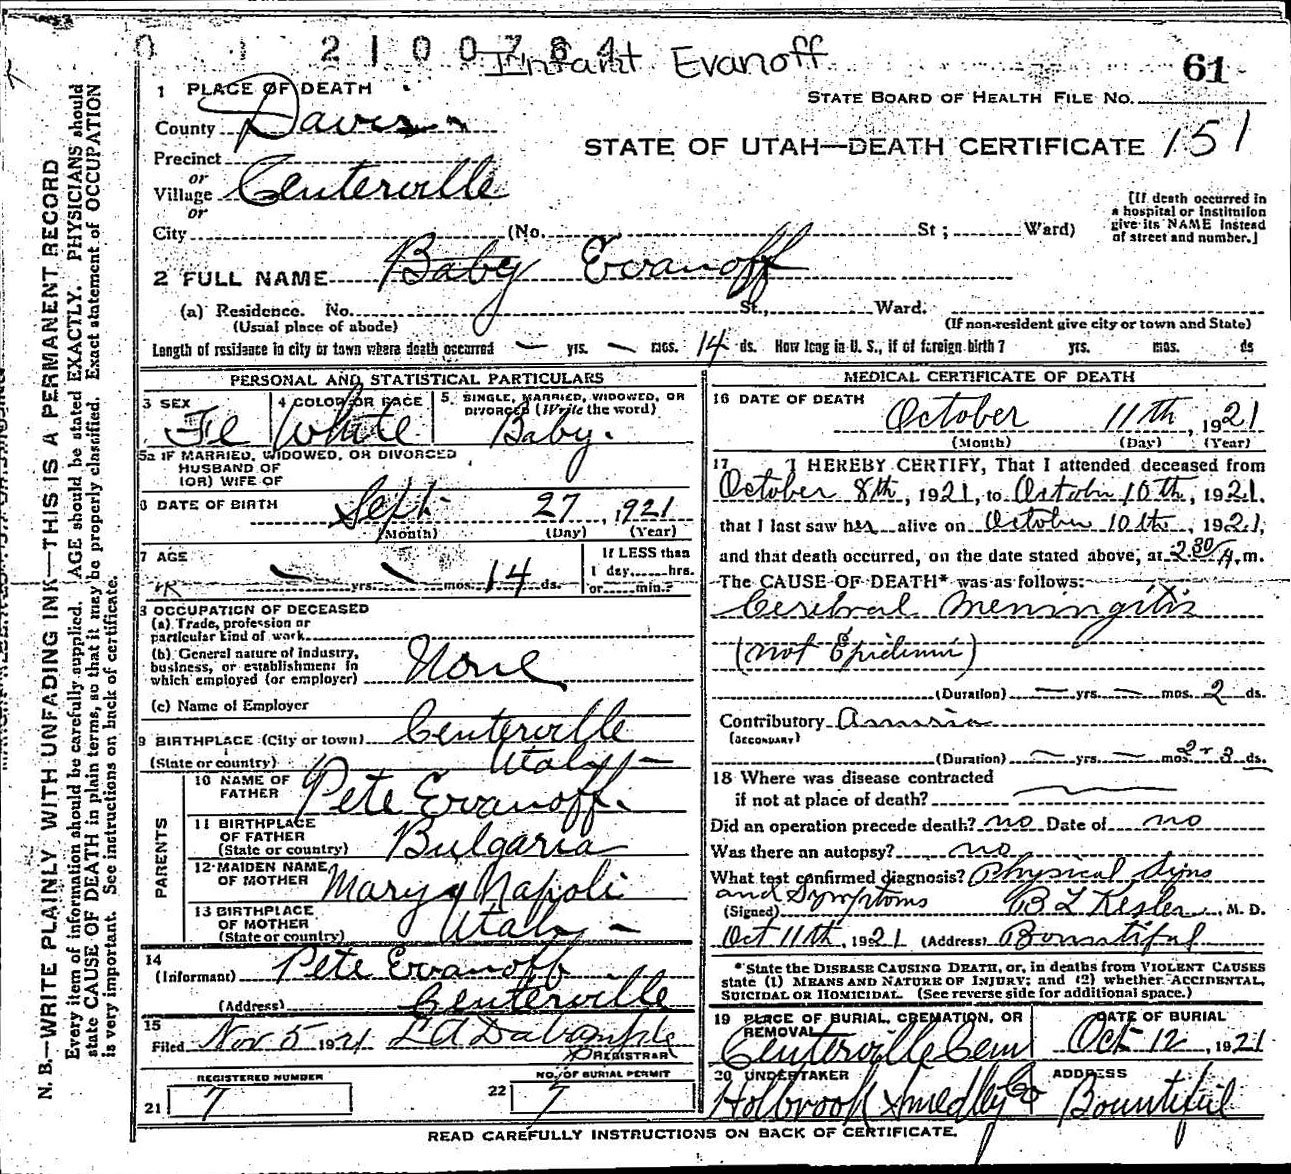 0 1 2100784
Infant Evanoff
61
STATE BOARD OF HEALTH FILE NO.
1 PLACE OF DEATH
County Davis
STATE OF UTAH—DEATH CERTIFICATE 151
Precinct
or
Village Centerville
or
[If death occurred in
a hospital or institution
give its NAME instead
of street and number.]
City (No. St; Ward)
2 FULL NAME Baby Evanoff
(a) Residence. No. St., Ward.
(Usual place of abode) (If non-resident give city or town and State)
Length of residence in city or town where death occurred — yrs. — mos. 14 ds. How long in U. S., if of foreign birth? yrs. mos. ds
PERSONAL AND STATISTICAL PARTICULARS
3 SEX Fe
4 COLOR OR RACE White
5. SINGLE, MARRIED, WIDOWED, OR
DIVORCED (Write the word)
Baby.
5a IF MARRIED, WIDOWED, OR DIVORCED
HUSBAND OF
(OR) WIFE OF
6 DATE OF BIRTH Sept 27, 1921
(Month) (Day) (Year)
7 AGE — yrs. — mos. 14 ds.
If LESS than
1 day, hrs.
or min.?
8 OCCUPATION OF DECEASED
(a) Trade, profession or
particular kind of work
(b) General nature of industry,
business, or establishment in
which employed (or employer) None
(c) Name of Employer
9 BIRTHPLACE (City or town) Centerville
(State or country) Utah —
PARENTS
10 NAME OF
FATHER Pete Evanoff.
11 BIRTHPLACE
OF FATHER
(State or country) Bulgaria
12 MAIDEN NAME
OF MOTHER Mary Napoli
13 BIRTHPLACE
OF MOTHER
(State or country) Utah —
14
(Informant) Pete Evanoff
(Address) Centerville
15
Filed Nov 5 1921
REGISTRAR
REGISTERED NUMBER
21 7
NO. OF BURIAL PERMIT
22 7
MEDICAL CERTIFICATE OF DEATH
16 DATE OF DEATH
October 11th, 1921
(Month) (Day) (Year)
17 I HEREBY CERTIFY, That I attended deceased from
October 8th, 1921, to October 10th, 1921.
that I last saw her alive on October 10th, 1921,
and that death occurred, on the date stated above, at 2 30/A. m.
The CAUSE OF DEATH* was as follows:
Cerebral Meningitis
(not Epidemic)
(Duration) — yrs. — mos. 2 ds.
Contributory
(SECONDARY)
(Duration) — yrs. — mos. 2-3 ds.
18 Where was disease contracted
if not at place of death?
Did an operation precede death? no Date of no
Was there an autopsy? no
What test confirmed diagnosis? Physical signs
and Symptoms
(Signed) B L Kesler, M. D.
Oct 11th, 1921 (Address) Bountiful
*State the DISEASE CAUSING DEATH, or, in deaths from VIOLENT CAUSES
state (1) MEANS AND NATURE OF INJURY; and (2) whether ACCIDENTAL,
SUICIDAL or HOMICIDAL. (See reverse side for additional space.)
19 PLACE OF BURIAL, CREMATION, OR
REMOVAL
Centerville Cem
DATE OF BURIAL
Oct 12, 1921
20 UNDERTAKER
Holbrook & Smedley Co
ADDRESS
Bountiful
READ CAREFULLY INSTRUCTIONS ON BACK OF CERTIFICATE.
N. B.—WRITE PLAINLY WITH UNFADING INK—THIS IS A PERMANENT RECORD
Every item of information should be carefully supplied. AGE should be stated EXACTLY. PHYSICIANS should
state CAUSE OF DEATH in plain terms, so that it may be properly classified. Exact statement of OCCUPATION
is very important. See instructions on back of certificate.